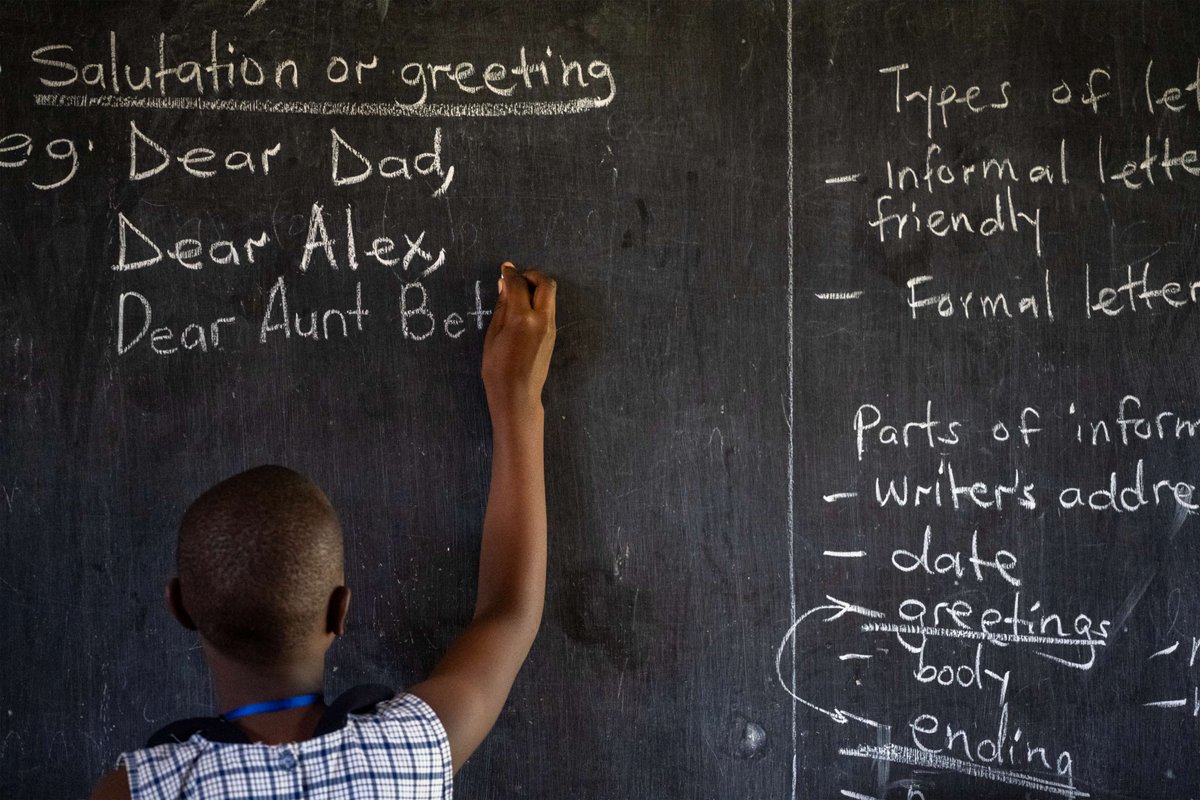 Salutation or greeting
eg. Dear Dad,
Dear Alex,
Dear Aunt Bet
Types of let
- Informal lette
friendly
- Formal letter
Parts of inform
- Writer's addre
- date
greetings
- body
ending